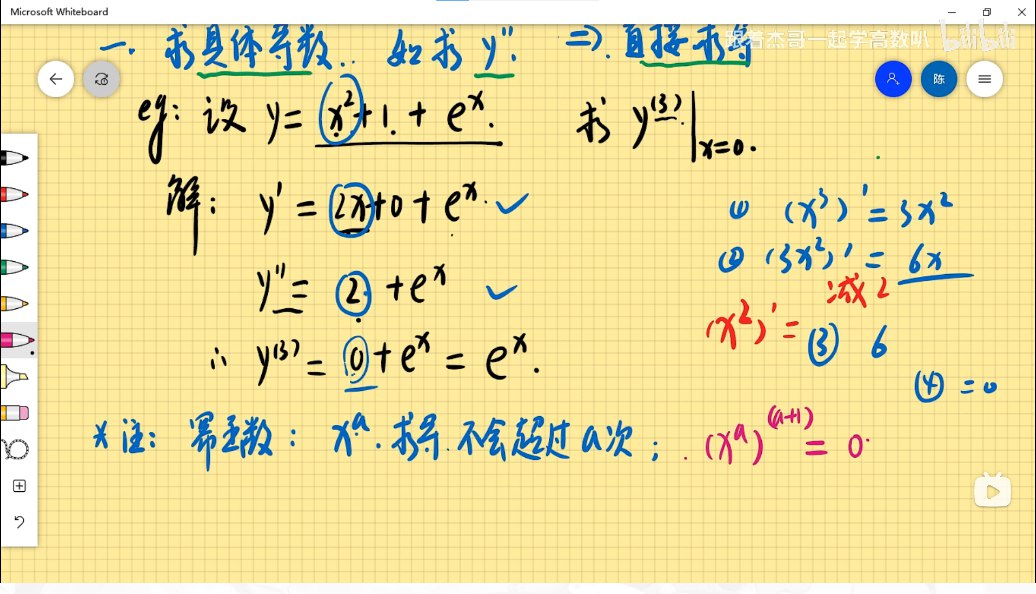 Microsoft Whiteboard
跟着杰哥一起学高数叭 bilibili
一. 求具体导数. 如求 y''. ⇒ 直接求导
陈
eg: 设 y = x²+1 + eˣ. 求 y⁽³⁾|x=0.
解: y' = 2x+0+eˣ. ✓
y'' = 2 + eˣ ✓
∴ y⁽³⁾ = 0 + eˣ = eˣ.
① (x³)' = 3x²
② (3x²)' = 6x
减2
(x²)' =
③ 6
④ = 0
* 注: 幂函数: xᵃ. 求导. 不会超过 a次; (xᵃ)⁽ᵃ⁺¹⁾ = 0